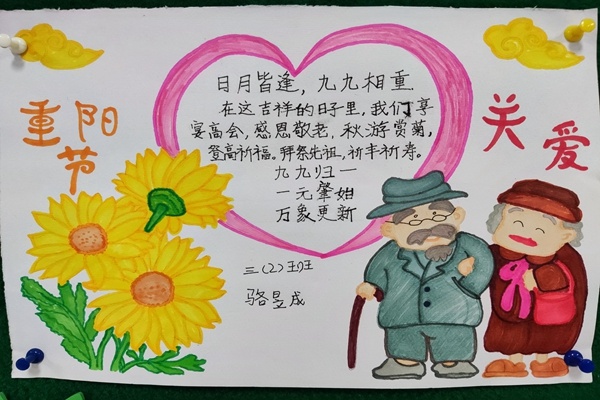 重阳
节
关
爱
日月皆逢，九九相重.
在这吉祥的日子里，我们享
宴高会，感恩敬老，秋游赏菊，
登高祈福。拜祭先祖，祈丰祈寿。
九九归一
一元肇始
万象更新
三（2）班
骆昱成